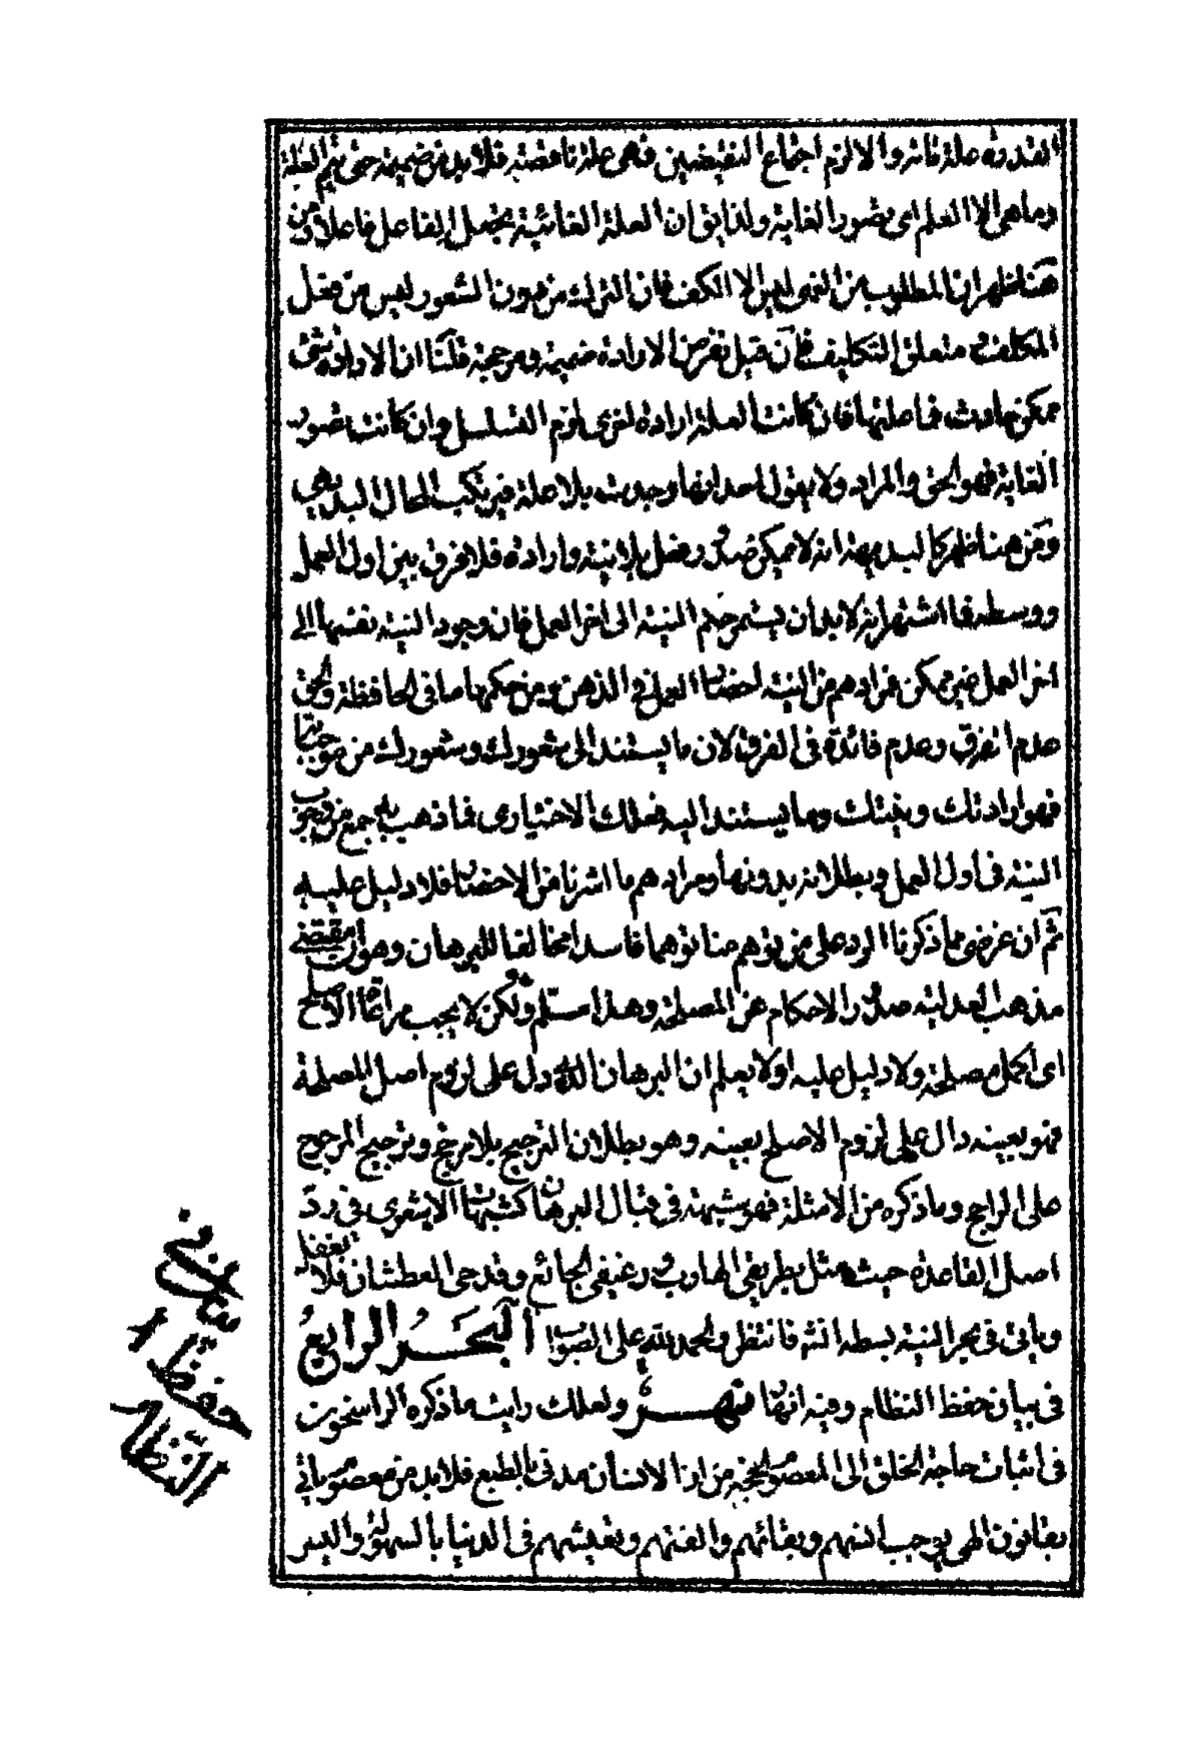 القدرة علة تامة والا لزم اجتماع النقيضين فهى علة ناقصة فلابد من ضميمة حتى تتم العلة
وما هى الا العلم اى تصور الغاية ولذا يق ان العلة الغائية تجعل الفاعل فاعلا ومن
هنا ظهر ان المطلوب من النهى ليس الا الكف فان الترك من دون الشعور ليس من فعل
المكلف ومتعلق التكليف فان قيل نفرض الارادة ضميمة ومرجحة قلنا ان الارادة شئ
ممكن حادث فما علتها فان كانت العلة ارادة اخرى لزم التسلسل وان كانت تصور
الغاية فهو الحق والمراد ولا يقول احد انها وجدت بلا علة فيرتكب المحال البديهى
ومن هنا ظهر كالبديهة انه لا يمكن صدور فعل بلا نية وارادة فلا فرق بين اول العمل
ووسطه فما اشتهر انه لابد ان يستمر حكم النية الى اخر العمل فان وجود النية بنفسها الى
اخر العمل غير ممكن فمرادهم من النية احضار العمل فى الذهن ومن حكمها ما فى الحافظة والحق
عدم الفرق وعدم فائدة فى الفرق لان ما يستند الى شعورك وشعورك من موجباته
فهو ارادتك ونيتك وما يستند اليه فعلك الاختيارى فما ذهب اليه جمع من وجوب
النية فى اول العمل وبطلانه بدونها ومرادهم ما اشرنا من الاحضار فلا دليل عليه
ثم ان غرضى مما ذكرنا الرد على من توهم هنا توهما فاسدا مخالفا للبرهان وهو ان مقتضى
مذهب العدلية صدور الاحكام عن المصلحة وهذا مسلم ولكن لا يجب مراعاة الاصلح
اى اكمل مصلحة ولا دليل عليه اولا يعلم ان البرهان الذى دل على لزوم اصل المصلحة
فهو بعينه دال على لزوم الاصلح بعينه وهو بطلان الترجيح بلا مرجح وترجيح المرجوح
على الراجح وما ذكره من الامثلة فهو شبهة فى قبال البرهان كشبهات الاشعرى فى رد
اصل القاعدة حيث مثل بطريقى الهارب ورغيفى الجائع وقدحى العطشان فلا تغفل
وياتى فى بحر النية بسطه انشه فانتظر والحمد لله على الصواب البحر الرابع
فى بيان حفظ النظام وفيه انهار نهر ولعلك رايت ما ذكره الراسخون
فى اثبات حاجة الخلق الى المعصوم الحجة من ان الانسان مدنى بالطبع فلابد من معصوم ياتى
بقانون الهى يوجب انسهم وبقائهم والفتهم وتعيشهم فى الدنيا بالسهولة واليسر
بيان فى
حفظ
النظام